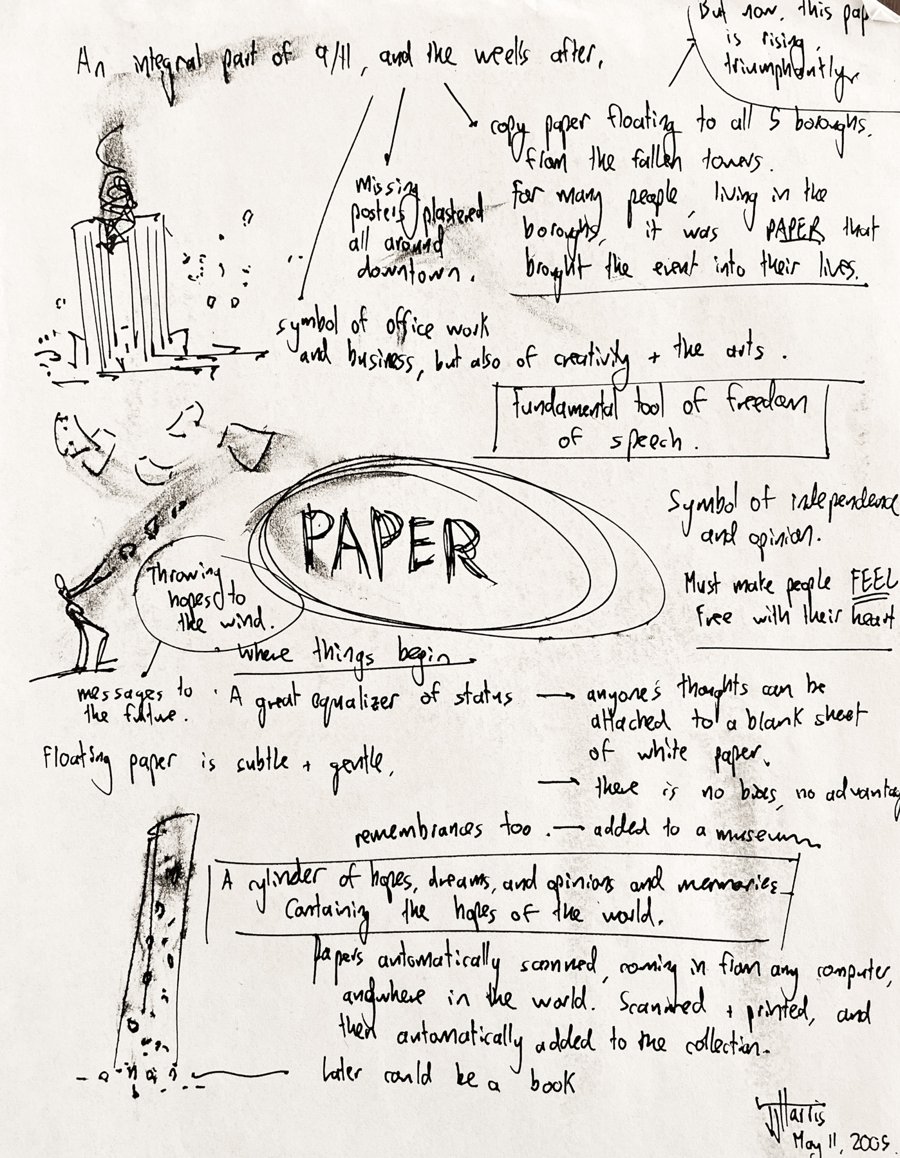 But now, this pap
is rising,
triumphantly
An integral part of 9/11, and the weeks after,
copy paper floating to all 5 boroughs,
from the fallen towers.
For many people, living in the
boroughs, it was PAPER that
brought the event into their lives.
missing
posters plastered
all around
downtown.
symbol of office work
and business, but also of creativity + the arts.
Fundamental tool of freedom
of speech.
PAPER
Symbol of independence
and opinion.
Must make people FEEL
free with their heart
Throwing
hopes to
the wind.
where things begin
messages to
the future.
A great equalizer of status → anyone's thoughts can be
attached to a blank sheet
of white paper.
→ there is no bias, no advantag
Floating paper is subtle + gentle.
remembrances too. → added to a museum
A cylinder of hopes, dreams, and opinions and memories
Containing the hopes of the world.
Papers automatically scanned, coming in from any computer,
anywhere in the world. Scanned + printed, and
then automatically added to the collection.
Later could be a book
JJHarris
May 11, 2005.